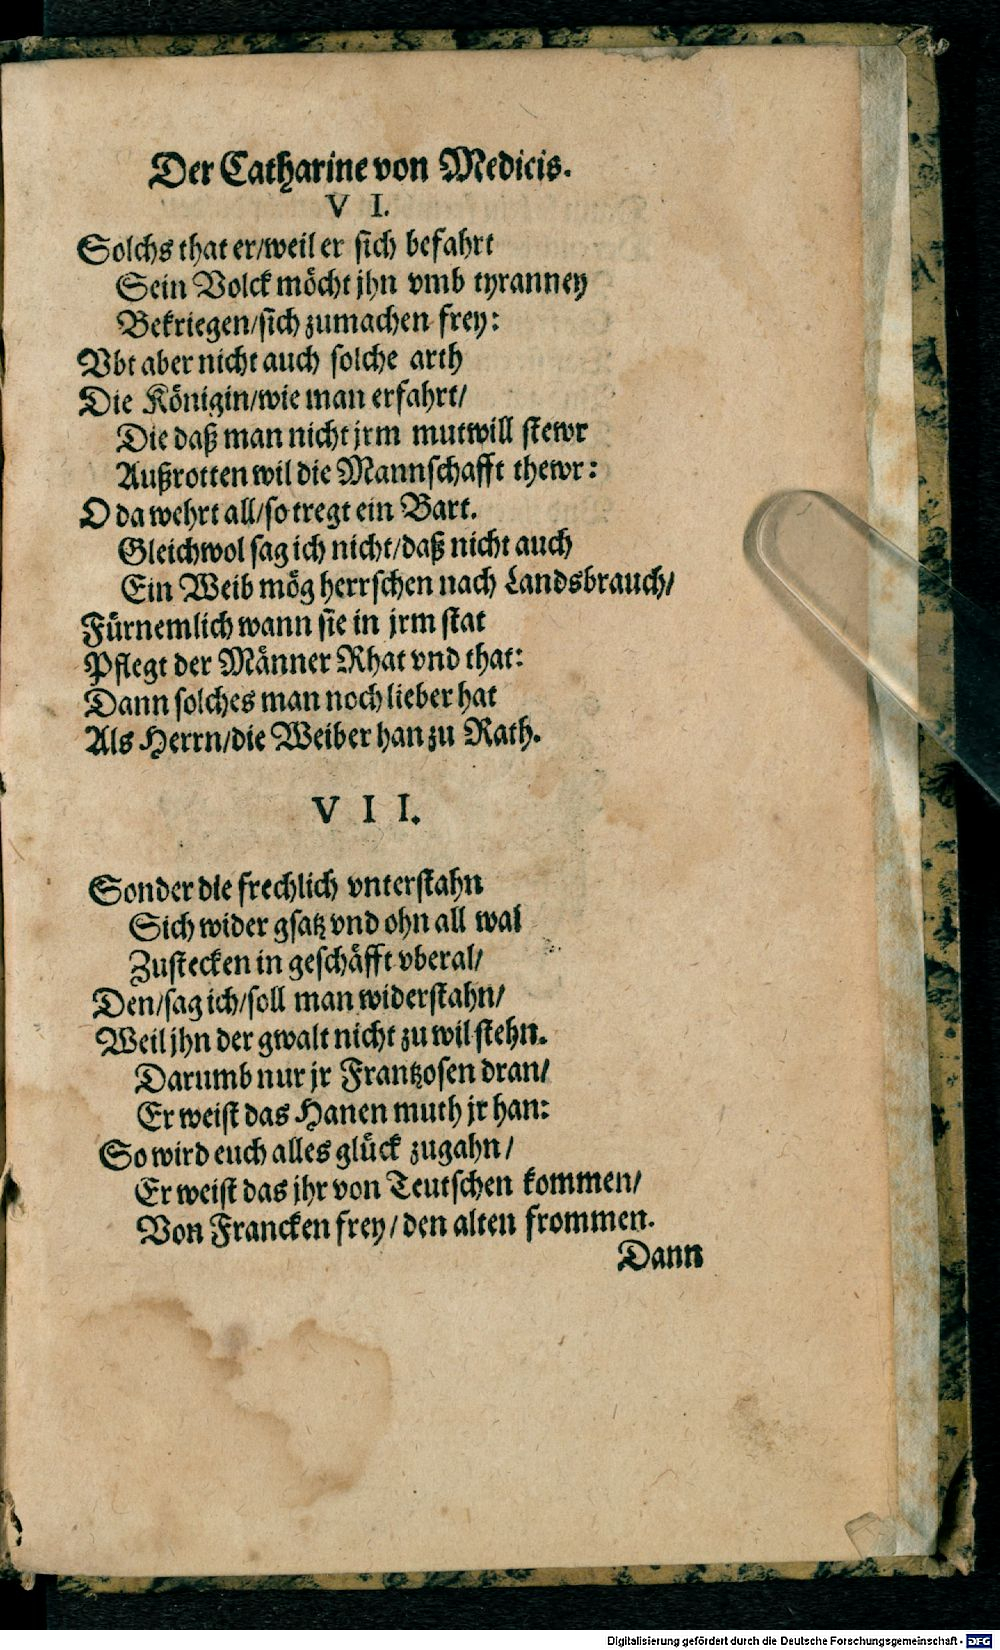 Der Catharine von Medicis.
V I.
Solchs that er/weil er sich befahrt
Sein Volck möcht jhn vmb tyranney
Bekriegen/sich zumachen frey:
Vbt aber nicht auch solche arth
Die Königin/wie man erfahrt/
Die daß man nicht jrm mutwill stewr
Außrotten wil die Mannschafft thewr:
O da wehrt all/so tregt ein Bart.
Gleichwol sag ich nicht/daß nicht auch
Ein Weib mög herrschen nach Landsbrauch/
Fürnemlich wann sie in jrm stat
Pflegt der Männer Rhat vnd that:
Dann solches man noch lieber hat
Als Herrn/die Weiber han zu Rath.
V I I.
Sonder die frechlich vnterstahn
Sich wider gsatz vnd ohn all wal
Zustecken in geschäfft vberal/
Den/sag ich/soll man widerstahn/
Weil jhn der gwalt nicht zu wil stehn.
Darumb nur jr Frantzosen dran/
Er weist das Hanen muth jr han:
So wird euch alles glück zugahn/
Er weist das jhr von Teutschen kommen/
Von Francken frey/den alten frommen.
Dann
Digitalisierung gefördert durch die Deutsche Forschungsgemeinschaft - DFG